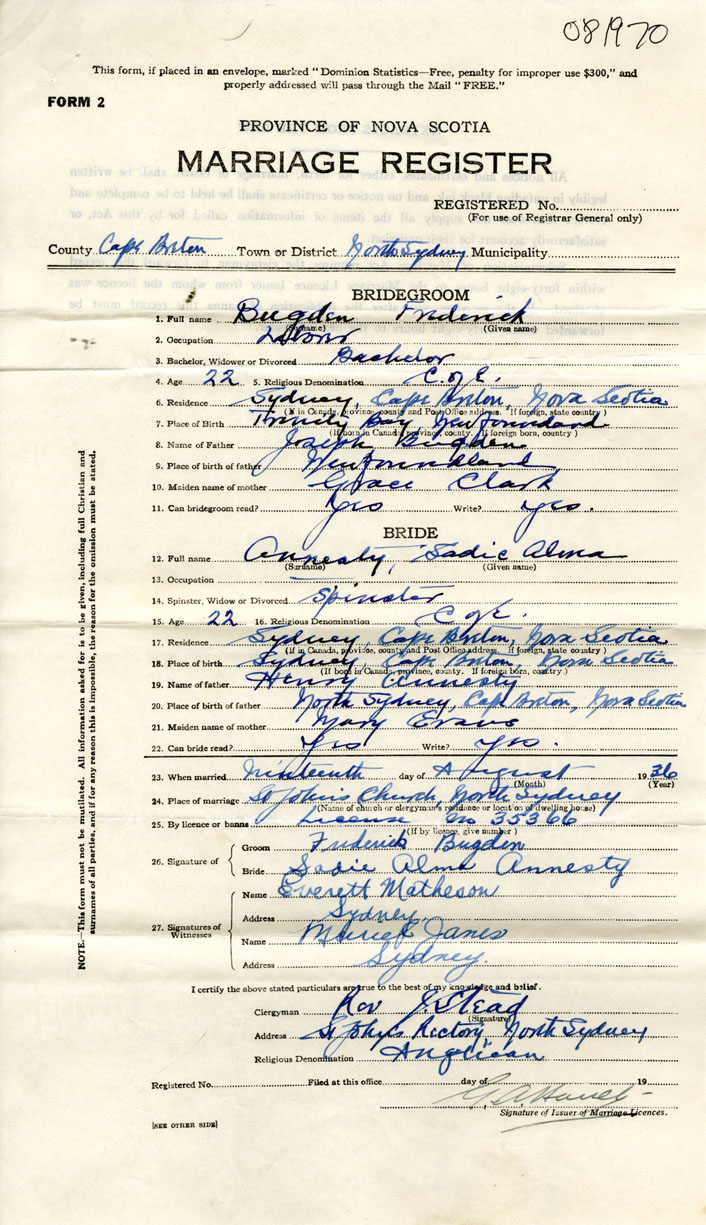 081970
This form, if placed in an envelope, marked "Dominion Statistics—Free, penalty for improper use $300," and
properly addressed will pass through the Mail "FREE."
FORM 2
PROVINCE OF NOVA SCOTIA
MARRIAGE REGISTER
REGISTERED No.
(For use of Registrar General only)
County Cape Breton Town or District North Sydney Municipality
BRIDEGROOM
1. Full name Bugden Frederick
(Surname) (Given name)
2. Occupation Labour
3. Bachelor, Widower or Divorced Bachelor
4. Age 22 5. Religious Denomination C. of E.
6. Residence Sydney, Cape Breton, Nova Scotia
(If in Canada, province, county and Post Office address. If foreign, state country)
7. Place of Birth Trinity Bay Newfoundland
(If born in Canada, province, county. If foreign born, country)
8. Name of Father Joseph Bugden
9. Place of birth of father Newfoundland
10. Maiden name of mother Grace Clark
11. Can bridegroom read? Yes Write? Yes.
BRIDE
12. Full name Annesty, Sadie Alma
(Surname) (Given name)
13. Occupation
14. Spinster, Widow or Divorced Spinster
15. Age 22 16. Religious Denomination C of E.
17. Residence Sydney, Cape Breton, Nova Scotia
(If in Canada, province, county and Post Office address. If foreign, state country)
18. Place of birth Sydney, Cape Breton, Nova Scotia
(If born in Canada, province, county. If foreign born, country)
19. Name of father Henry Annesty
20. Place of birth of father North Sydney, Cape Breton, Nova Scotia
21. Maiden name of mother Mary Evans
22. Can bride read? Yes Write? Yes.
23. When married Ninteenth day of August 1936
(Month) (Year)
24. Place of marriage St John's Church, North Sydney
(Name of church or clergyman's residence or location of dwelling house)
25. By licence or banns License No 35366
(If by licence, give number)
26. Signature of Groom Frederick Bugden
Bride Sadie Alma Annesty
27. Signatures of Witnesses
Name Everett Matheson
Address Sydney,
Name Muriel Janes
Address Sydney.
I certify the above stated particulars are true to the best of my knowledge and belief.
Clergyman Rev J. Stead
(Signature)
Address St John's Rectory, North Sydney
Religious Denomination Anglican
Registered No. Filed at this office day of 19
Signature of Issuer of Marriage Licences.
[SEE OTHER SIDE]
NOTE.—This form must not be mutilated. All information asked for is to be given, including full Christian and
surnames of all parties, and if for any reason this is impossible, the reason for the omission must be stated.